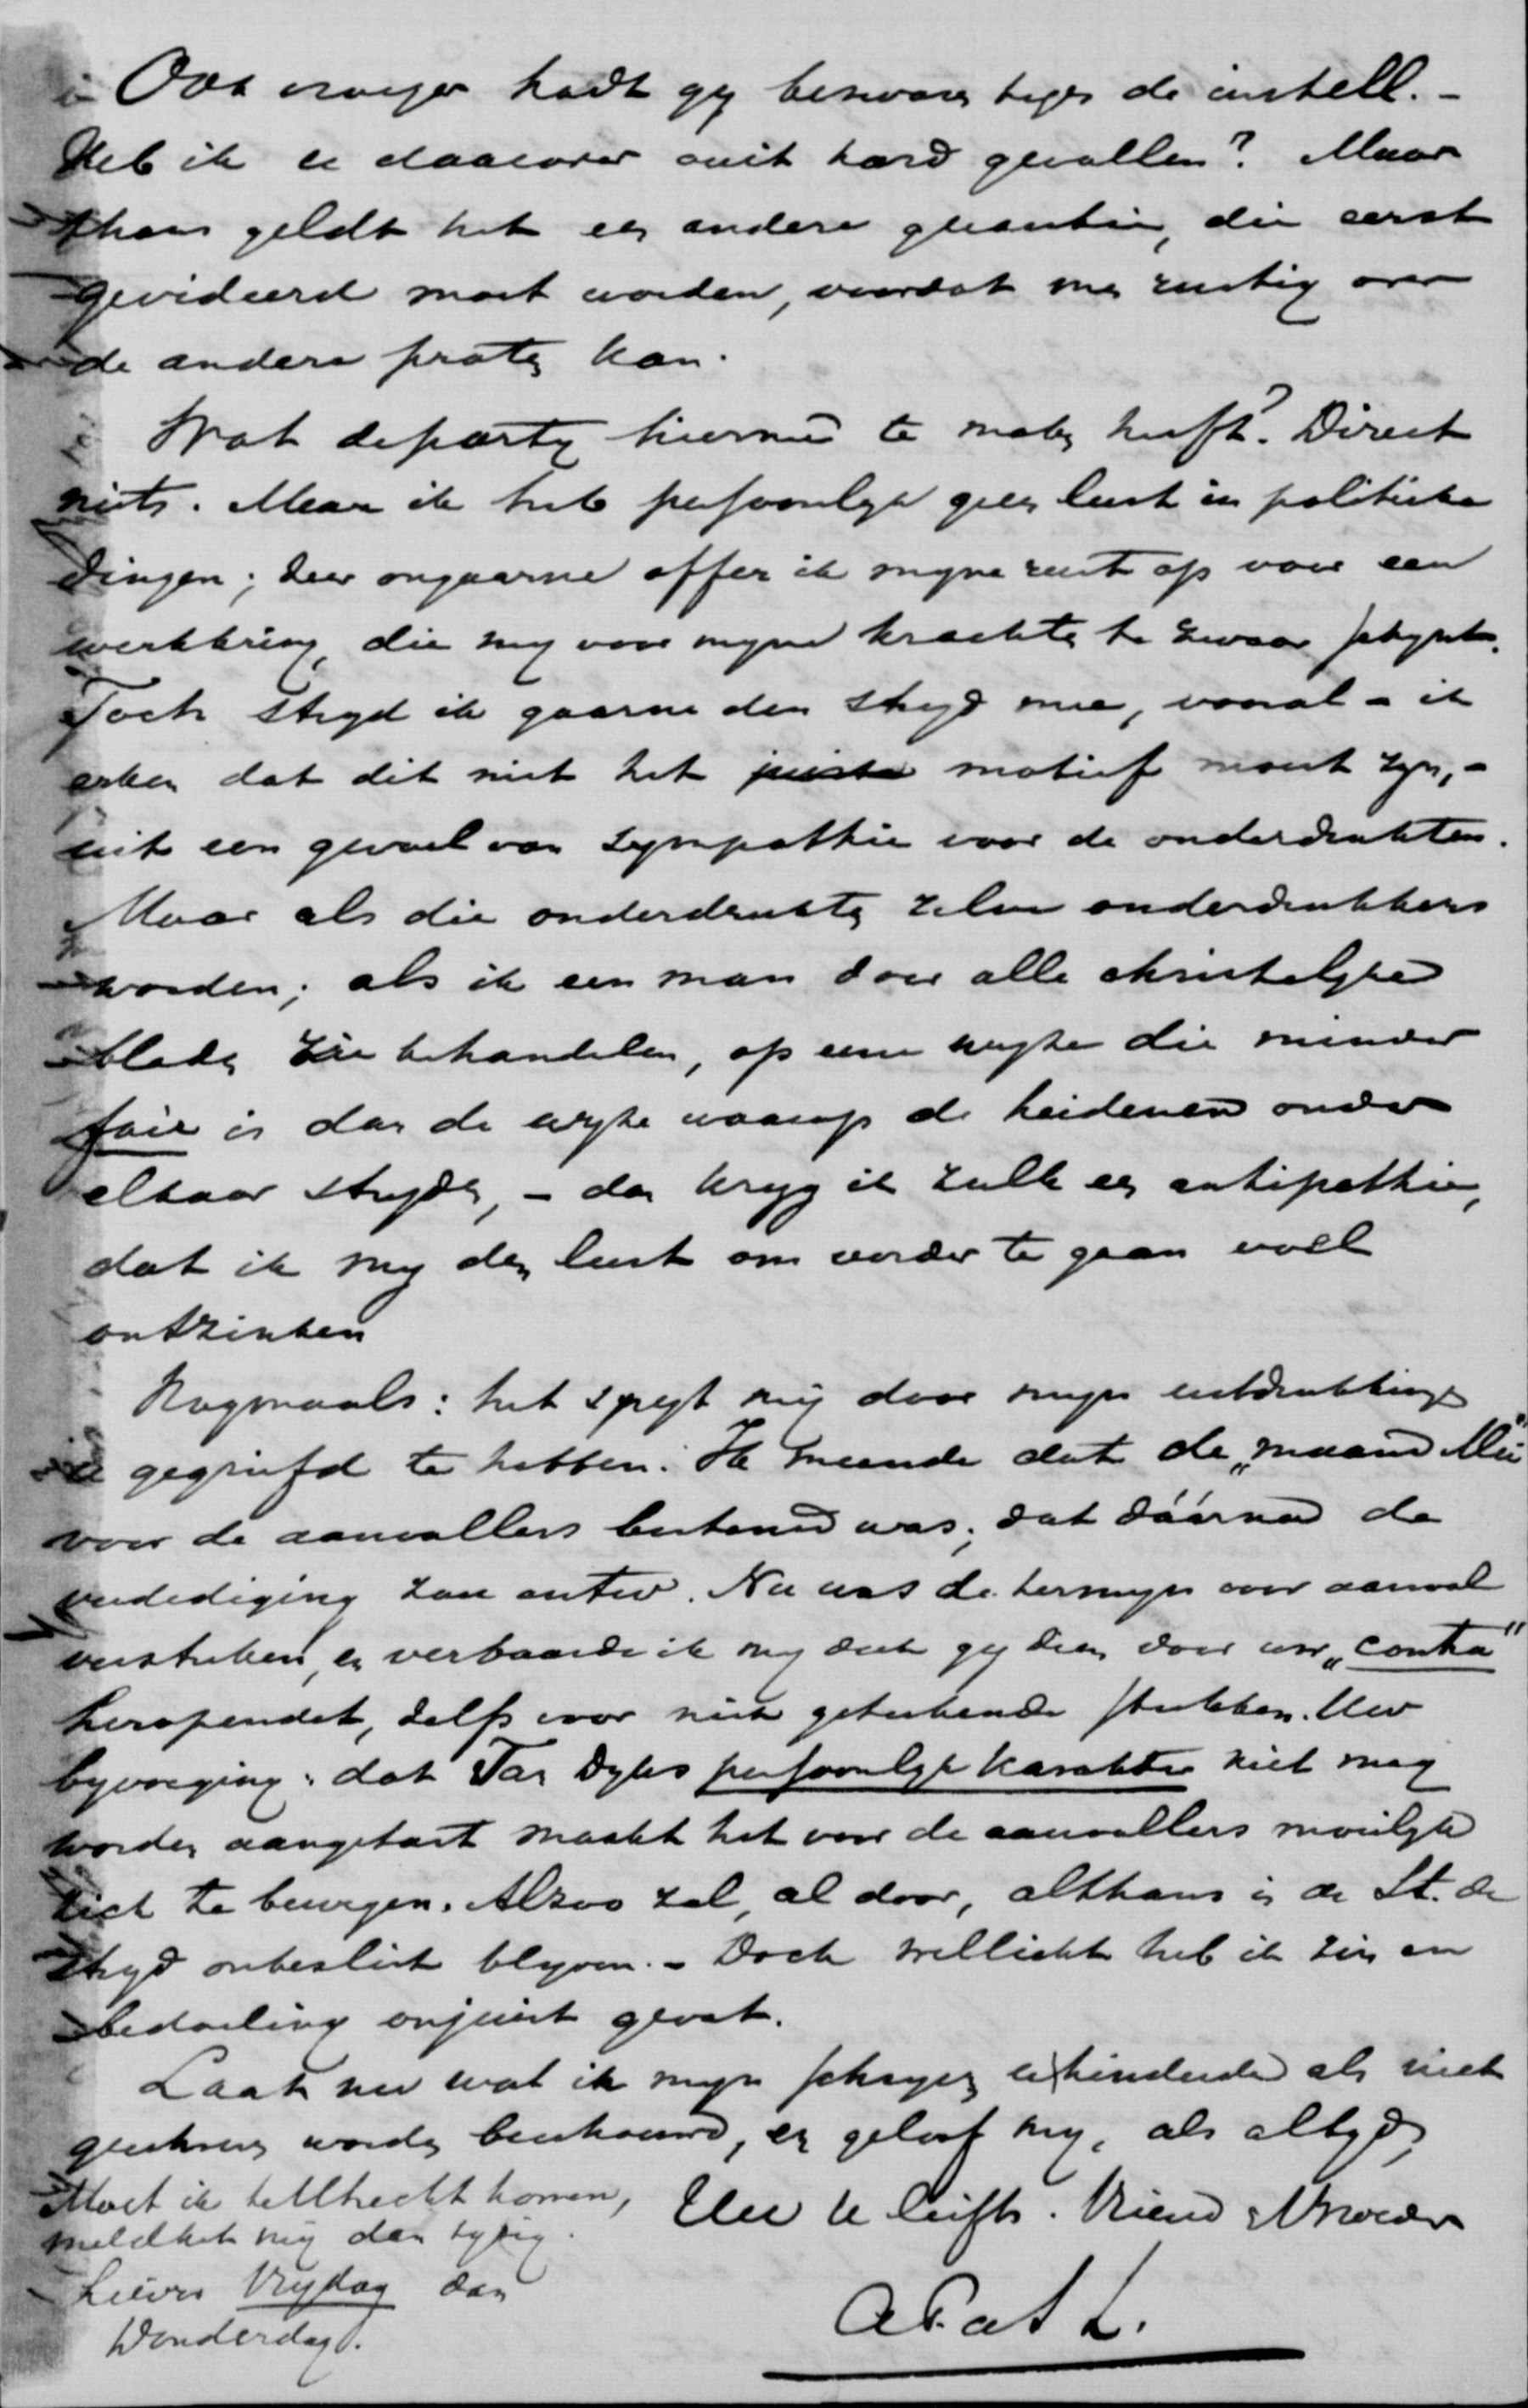 Ook vroeger hadt gij bezwaren tegen de instell. -
Heb ik u daarover ooit hard gevallen? Maar
thans geldt het een andere quaestie, die eerst
gevideerd moet worden, voordat men rustig over
de andere praten kan.
Wat de party hiermeê te maken heeft? Direct
niets. Maar ik heb persoonlijk geen lust in politieke
dingen; zeer ongaarne offer ik mijne rust op voor een
werkkring, die mij voor mijne krachten te zwaar schijnt.
Toch strijd ik gaarne den strijd mee, vooral - ik
erken dat dit niet het juiste motief moest zijn, -
uit een gevoel van sympathie voor de onderdrukten.
Maar als die onderdrukten zelve onderdrukkers
worden; als ik een man door alle christelijke
bladen zie behandelen, op eene wijze die minder
fair is dan de wijze waarop de heidenen onder
elkaar strijden, - dan krijg ik zulk een antipathie,
dat ik mij den lust om verder te gaan voel
ontzinken
Nogmaals: het spijt mij door mijn uitdrukkingen
u gegriefd te hebben. Ik meende dat de „maand Mei"
voor de aanvallers bestemd was; dat dáárna de
verdediging zou antw. Nu was de termijn voor aanval
verstreken, en verbaasde ik mij dat gij dien door uw „contra"
heropendet, zelfs voor niet geteekende stukken. Uw
bijvoeging: dat Van Dijks persoonlijk karakter niet mag
worden aangetast maakt het voor de aanvallers moeilijk
zich te bewegen. Alzoo zal, al door, althans in de St. de
strijd onbeslist blijven. - Doch wellicht heb ik zin en
bedoeling onjuist gevat.
Laat nu wat ik mijn schrijven u hinderde als niet
geschreven worden beschouwd, en geloof mij, als altijd,
Uw u liefh. Vriend & Broeder
Moet ik te Utrecht komen,
meld het mij dan tijdig.
Liever Vrijdag dan
Donderdag.